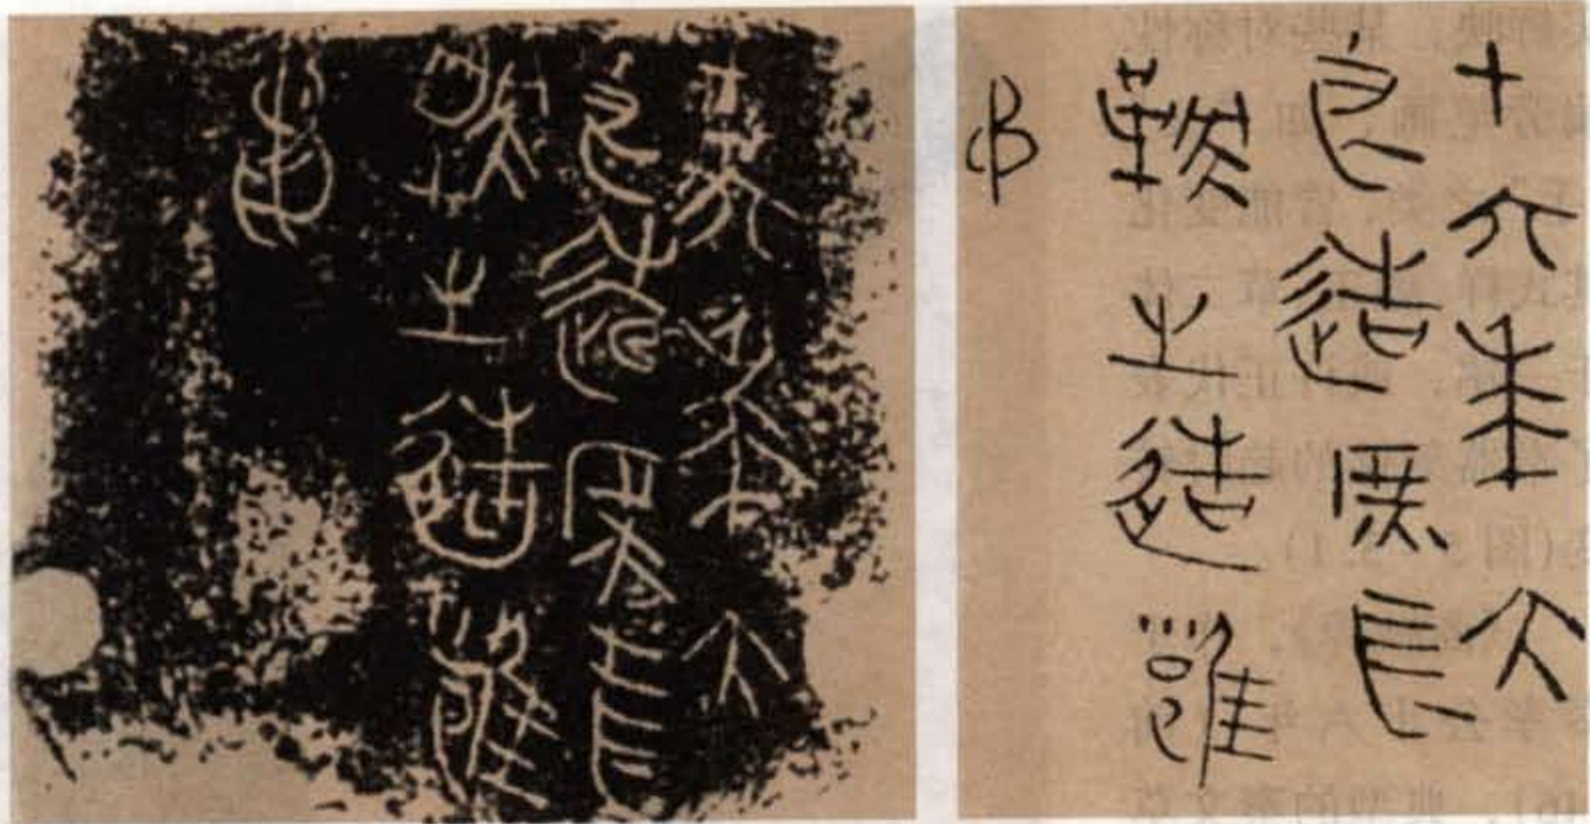 十六年大
良造庶長
鞅之造雝
十六年大
良造庶長
鞅之造雝